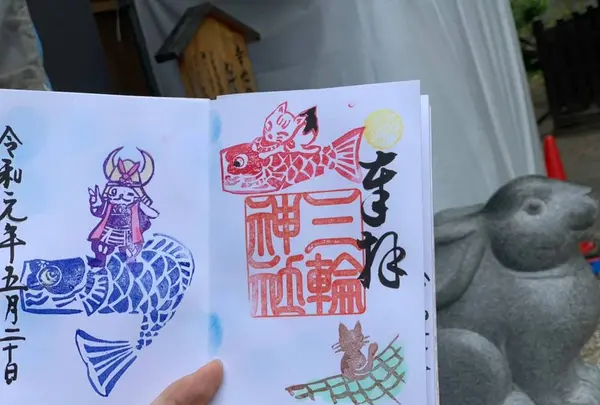 奉拝
三輪
神社
令和元年五月二十日